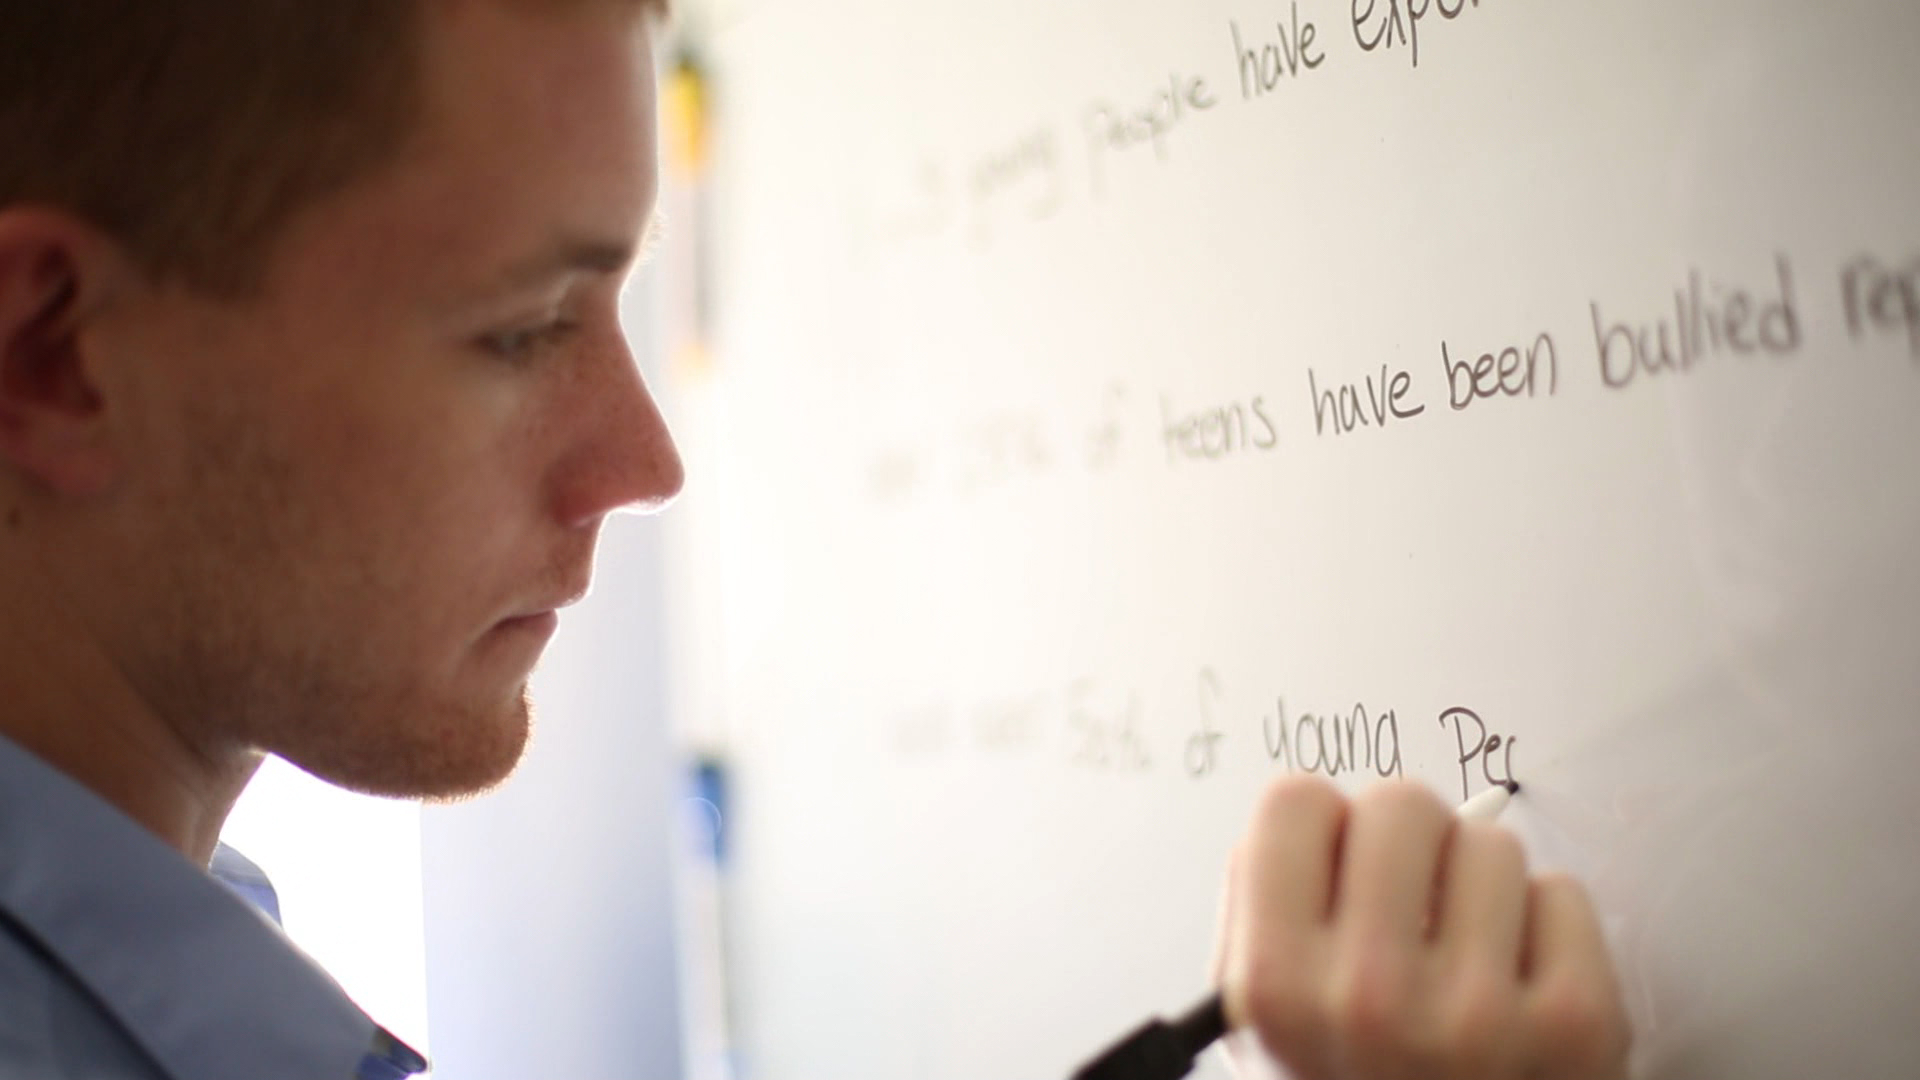 young people have expe
of teens have been bullied rep
50% of young Peo